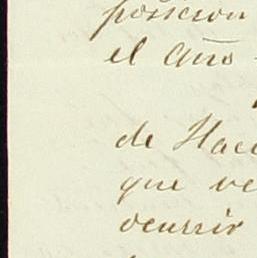 posicion
el Año
de Hac
que ve
ocurrir